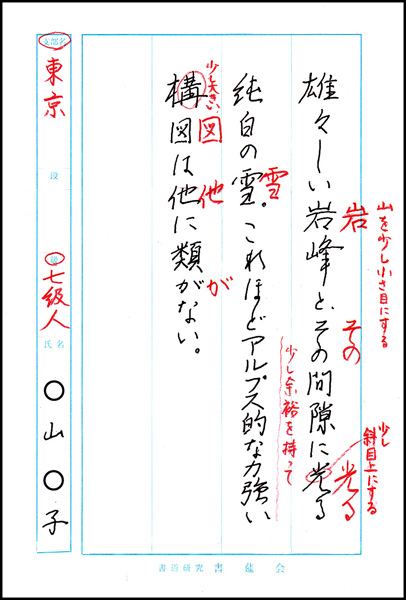 山を少し小さ目にする
少し
斜目上にする
岩
その
光る
雄々しい岩峰と、その間隙に光る
少し余裕を持って
雪
純白の雪。これほどアルプス的な力強い
少し大きい
図
他
が
構図は他に類がない。
支部名
東京
段
七級人
氏名
〇山〇子
書道研究 書 会